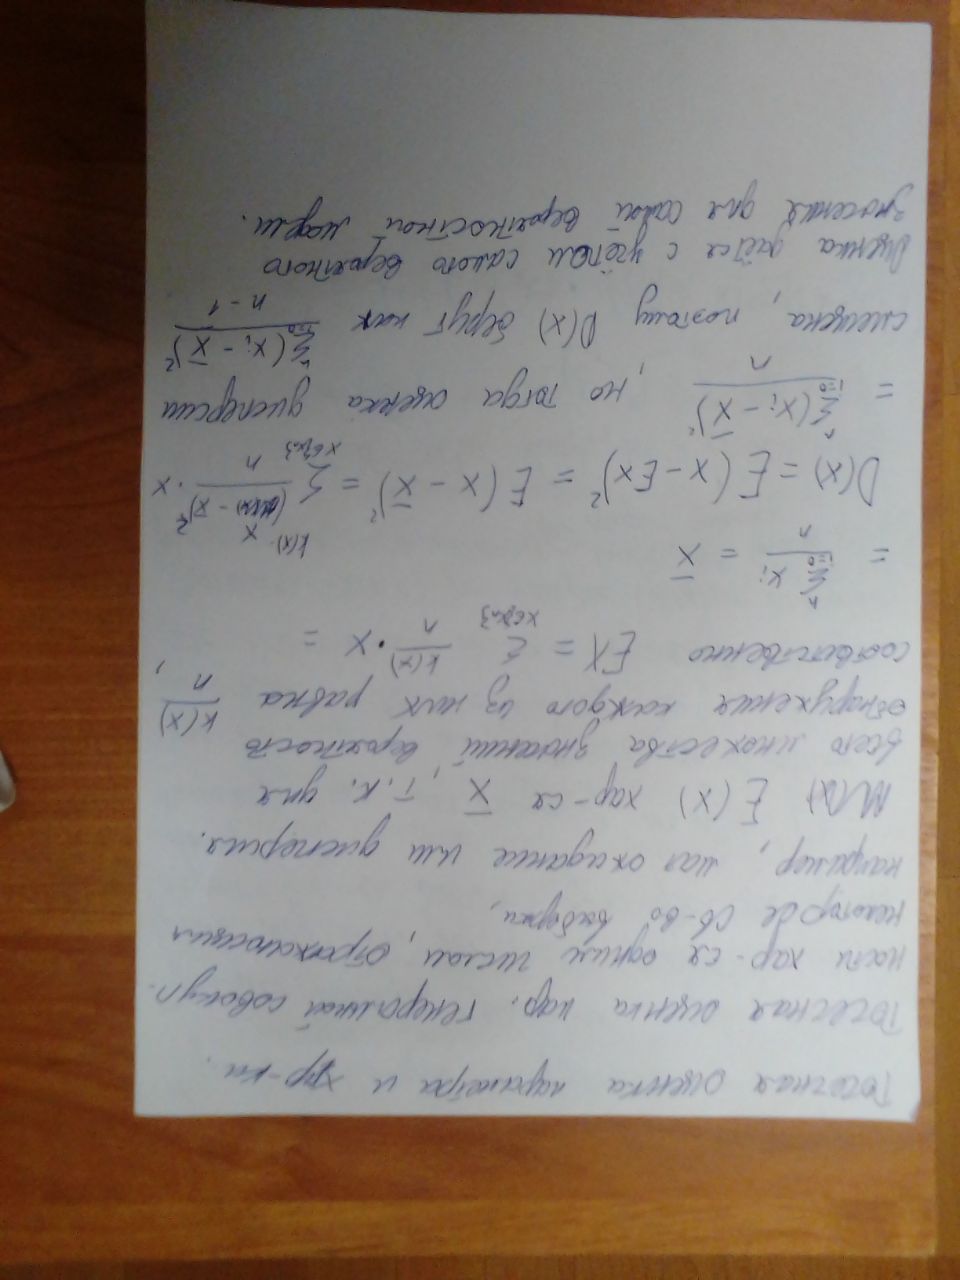 Точечная оценка параметра и хар-ки.
Точечная оценка пар. генеральной совокуп-
ности хар-ся одним числом, отражающим
некоторое св-во выборки,
например, мат ожидание или дисперсия.
E(X) хар-ся X̅ т.к. для
всего множества значений, вероятность
обнаружения каждого из них равна k(x)/n,
соответственно EX = Σ_{x∈{x_n}} k(x)/n · x =
= Σ_{i=0}^{n} x_i / n = x̅
D(x) = E(x - Ex)² = E(x - x̅)² = Σ_{x∈{x_n}} (x - x̅)²/n · k(x)
= Σ_{i=0}^{n} (x_i - x̅)² / n , но тогда оценка дисперсии
смещена, поэтому D(x) берут как Σ_{i=0}^{n} (x_i - x̅)² / n - 1
Оценка даётся с учётом самого вероятного
значения для самой вероятностной модели.